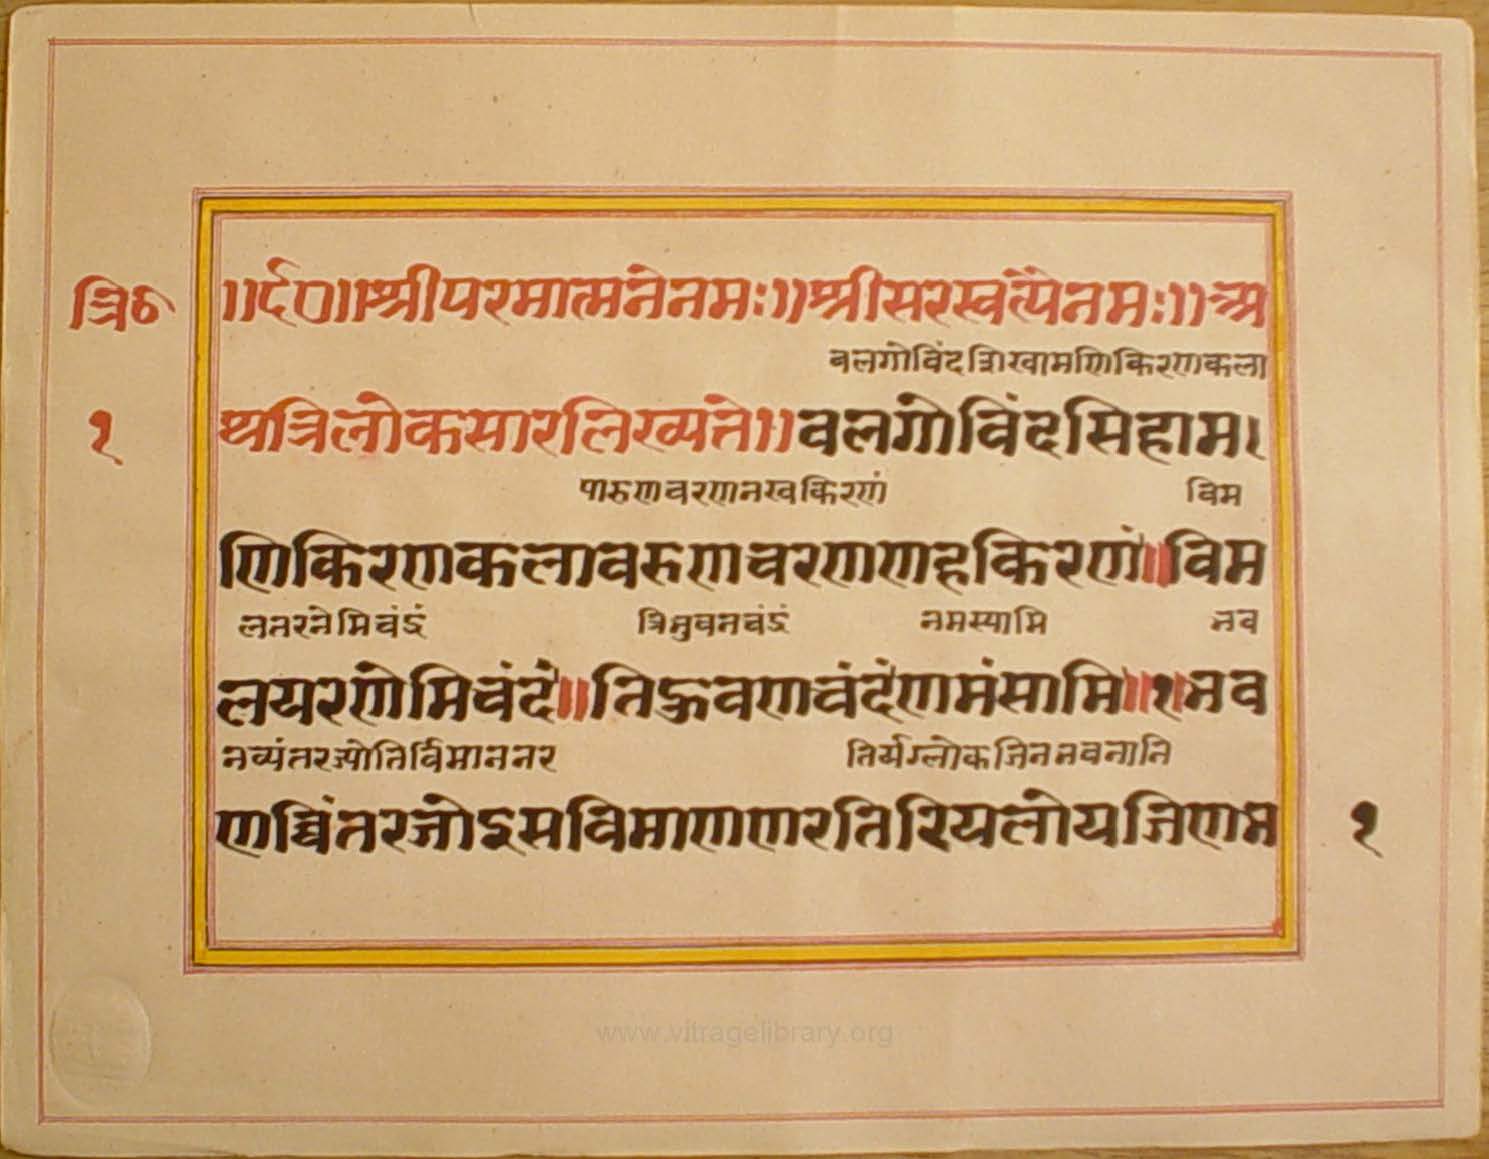 त्रिठ
॥र्द०॥श्रीपरमात्मनेनमः॥श्रीसरस्वत्यैनमः॥अ
बलगोविंदशिखामणिकिरणकला
१
थत्रिलोकसारलिख्यते॥वलगोविंदसिहाम।
पारुणचरणनखकिरणं विम
णिकिरणकलावरुणचरणणहकिरणं॥विम
लतरनेमिचंद्रं त्रिभुवनचंद्रं नमस्यामि भव
लयरणेमिचंदं॥तिहुवणचंदंणमंसामि॥१॥भव
नव्यंतरज्योतिर्विमाननर तिर्यग्लोकजिनभवनानि
णव्विंतरजोइसविमाणणरतिरियलोयजिणभ
१
www.vitragelibrary.org